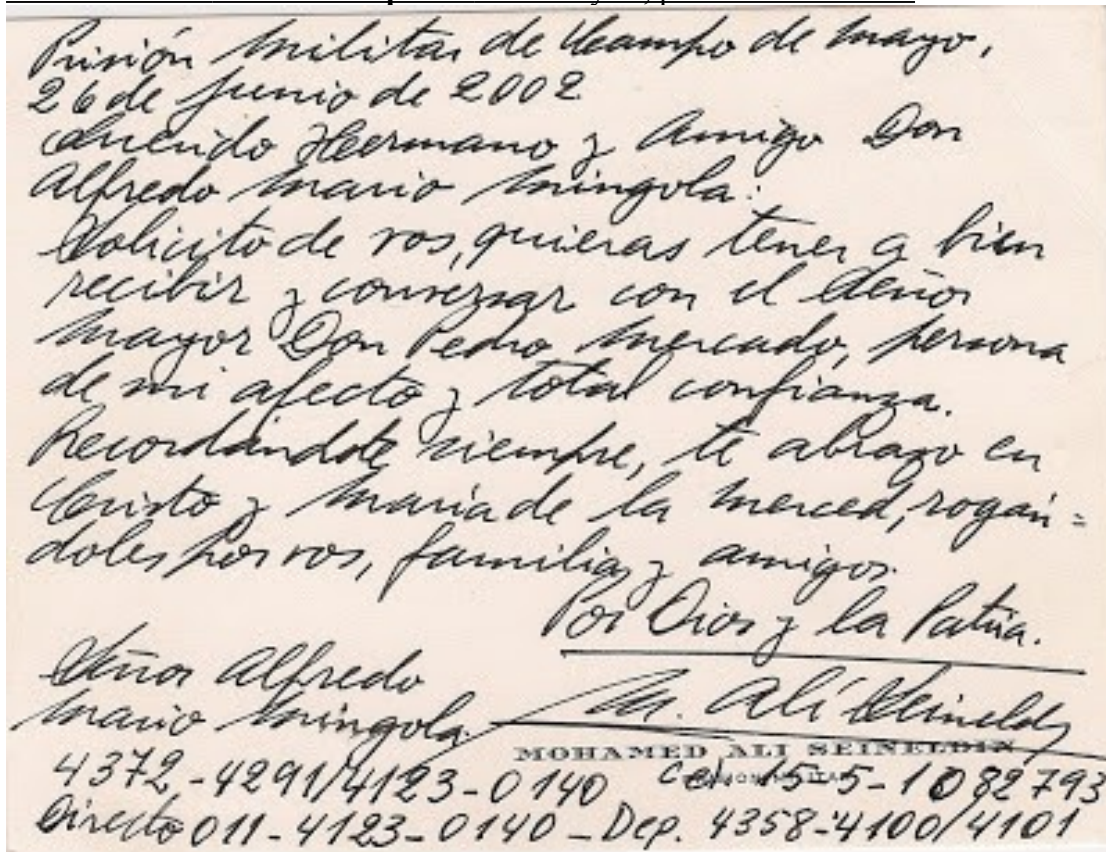 Prisión Militar de Campo de Mayo,
26 de Junio de 2002
Querido Hermano y Amigo Don
Alfredo Mario Mingola:
Solicito de vos, quieras tener a bien
recibir y conversar con el Señor
Mayor Don Pedro Mercado, persona
de mi afecto y total confianza.
Recordándote siempre, te abrazo en
Cristo y María de la Merced, rogán=
doles por vos, familia y amigos.
Por Dios y la Patria.
Señor Alfredo
Mario Mingola.
M. Alí Seineldín
MOHAMED ALI SEINELDIN
4372-4291/4123-0140 Cel. 15-5-1082793
Directo 011-4123-0140 - Dep. 4358-4100/4101